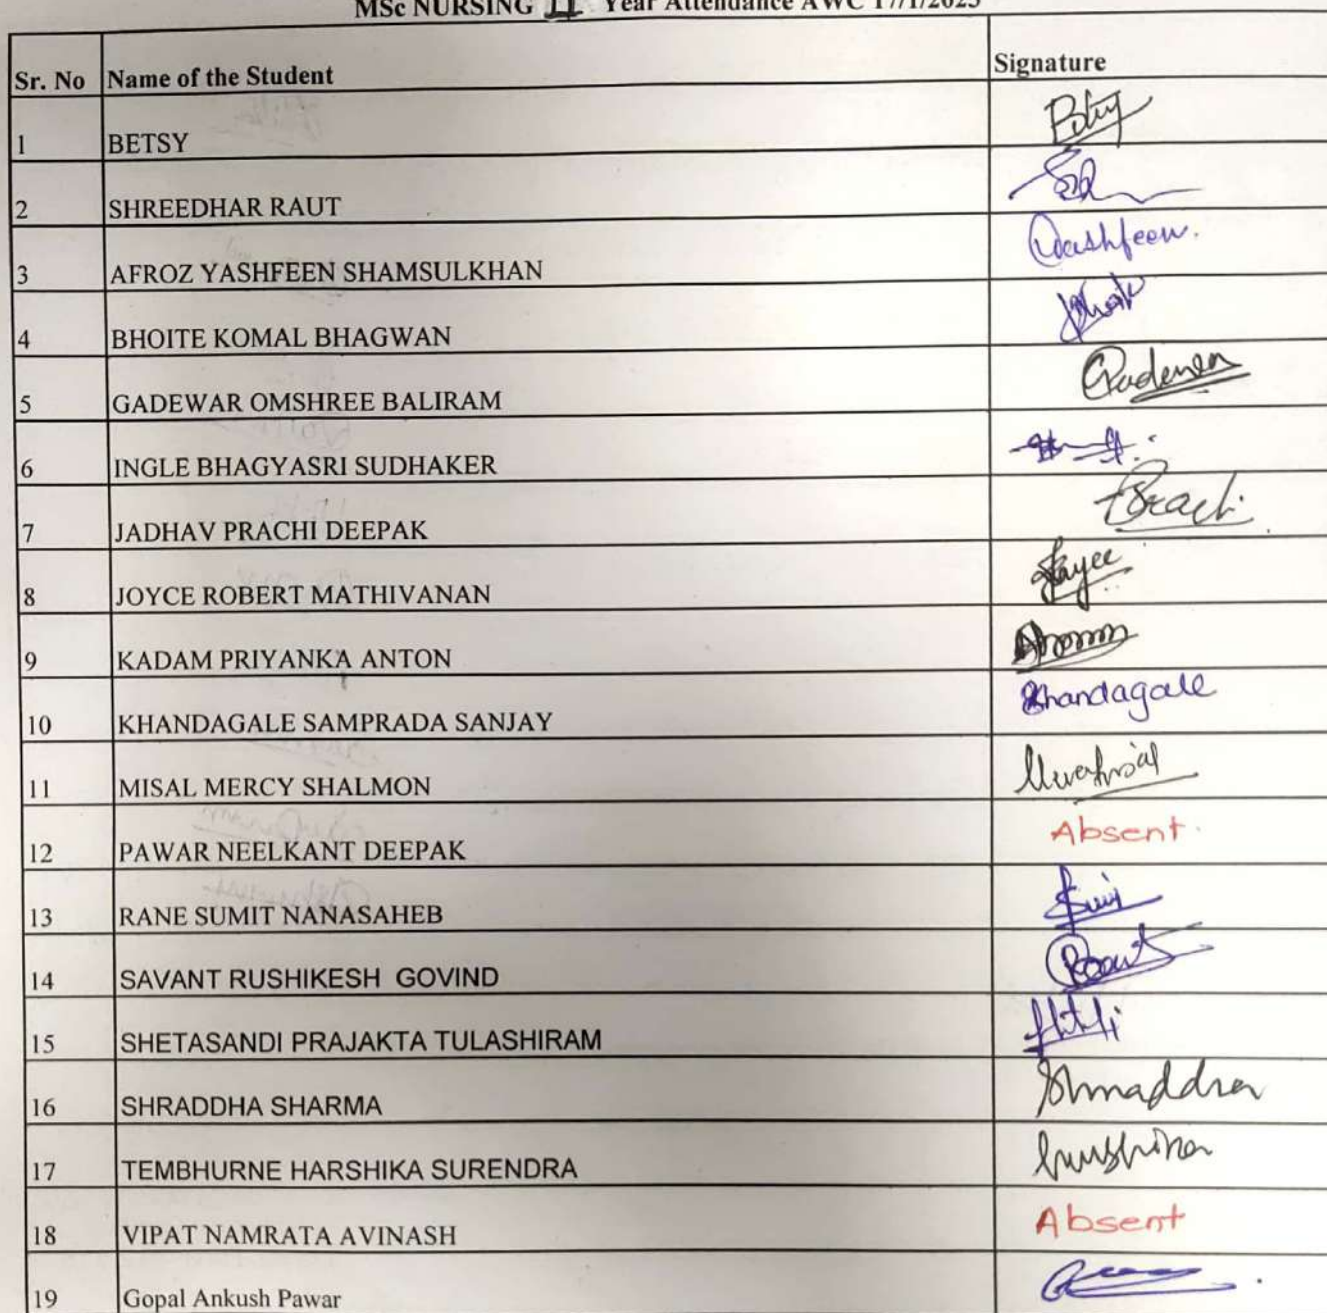 MSc NURSING II Year Attendance AWC 17/1/2023
Sr. No Name of the Student Signature
1 BETSY Betsy
2 SHREEDHAR RAUT
3 AFROZ YASHFEEN SHAMSULKHAN Yashfeen.
4 BHOITE KOMAL BHAGWAN
5 GADEWAR OMSHREE BALIRAM Gadewar
6 INGLE BHAGYASRI SUDHAKER
7 JADHAV PRACHI DEEPAK Prachi
8 JOYCE ROBERT MATHIVANAN Joyce
9 KADAM PRIYANKA ANTON
10 KHANDAGALE SAMPRADA SANJAY Khandagale
11 MISAL MERCY SHALMON
12 PAWAR NEELKANT DEEPAK Absent.
13 RANE SUMIT NANASAHEB
14 SAVANT RUSHIKESH GOVIND
15 SHETASANDI PRAJAKTA TULASHIRAM
16 SHRADDHA SHARMA
17 TEMBHURNE HARSHIKA SURENDRA
18 VIPAT NAMRATA AVINASH Absent
19 Gopal Ankush Pawar